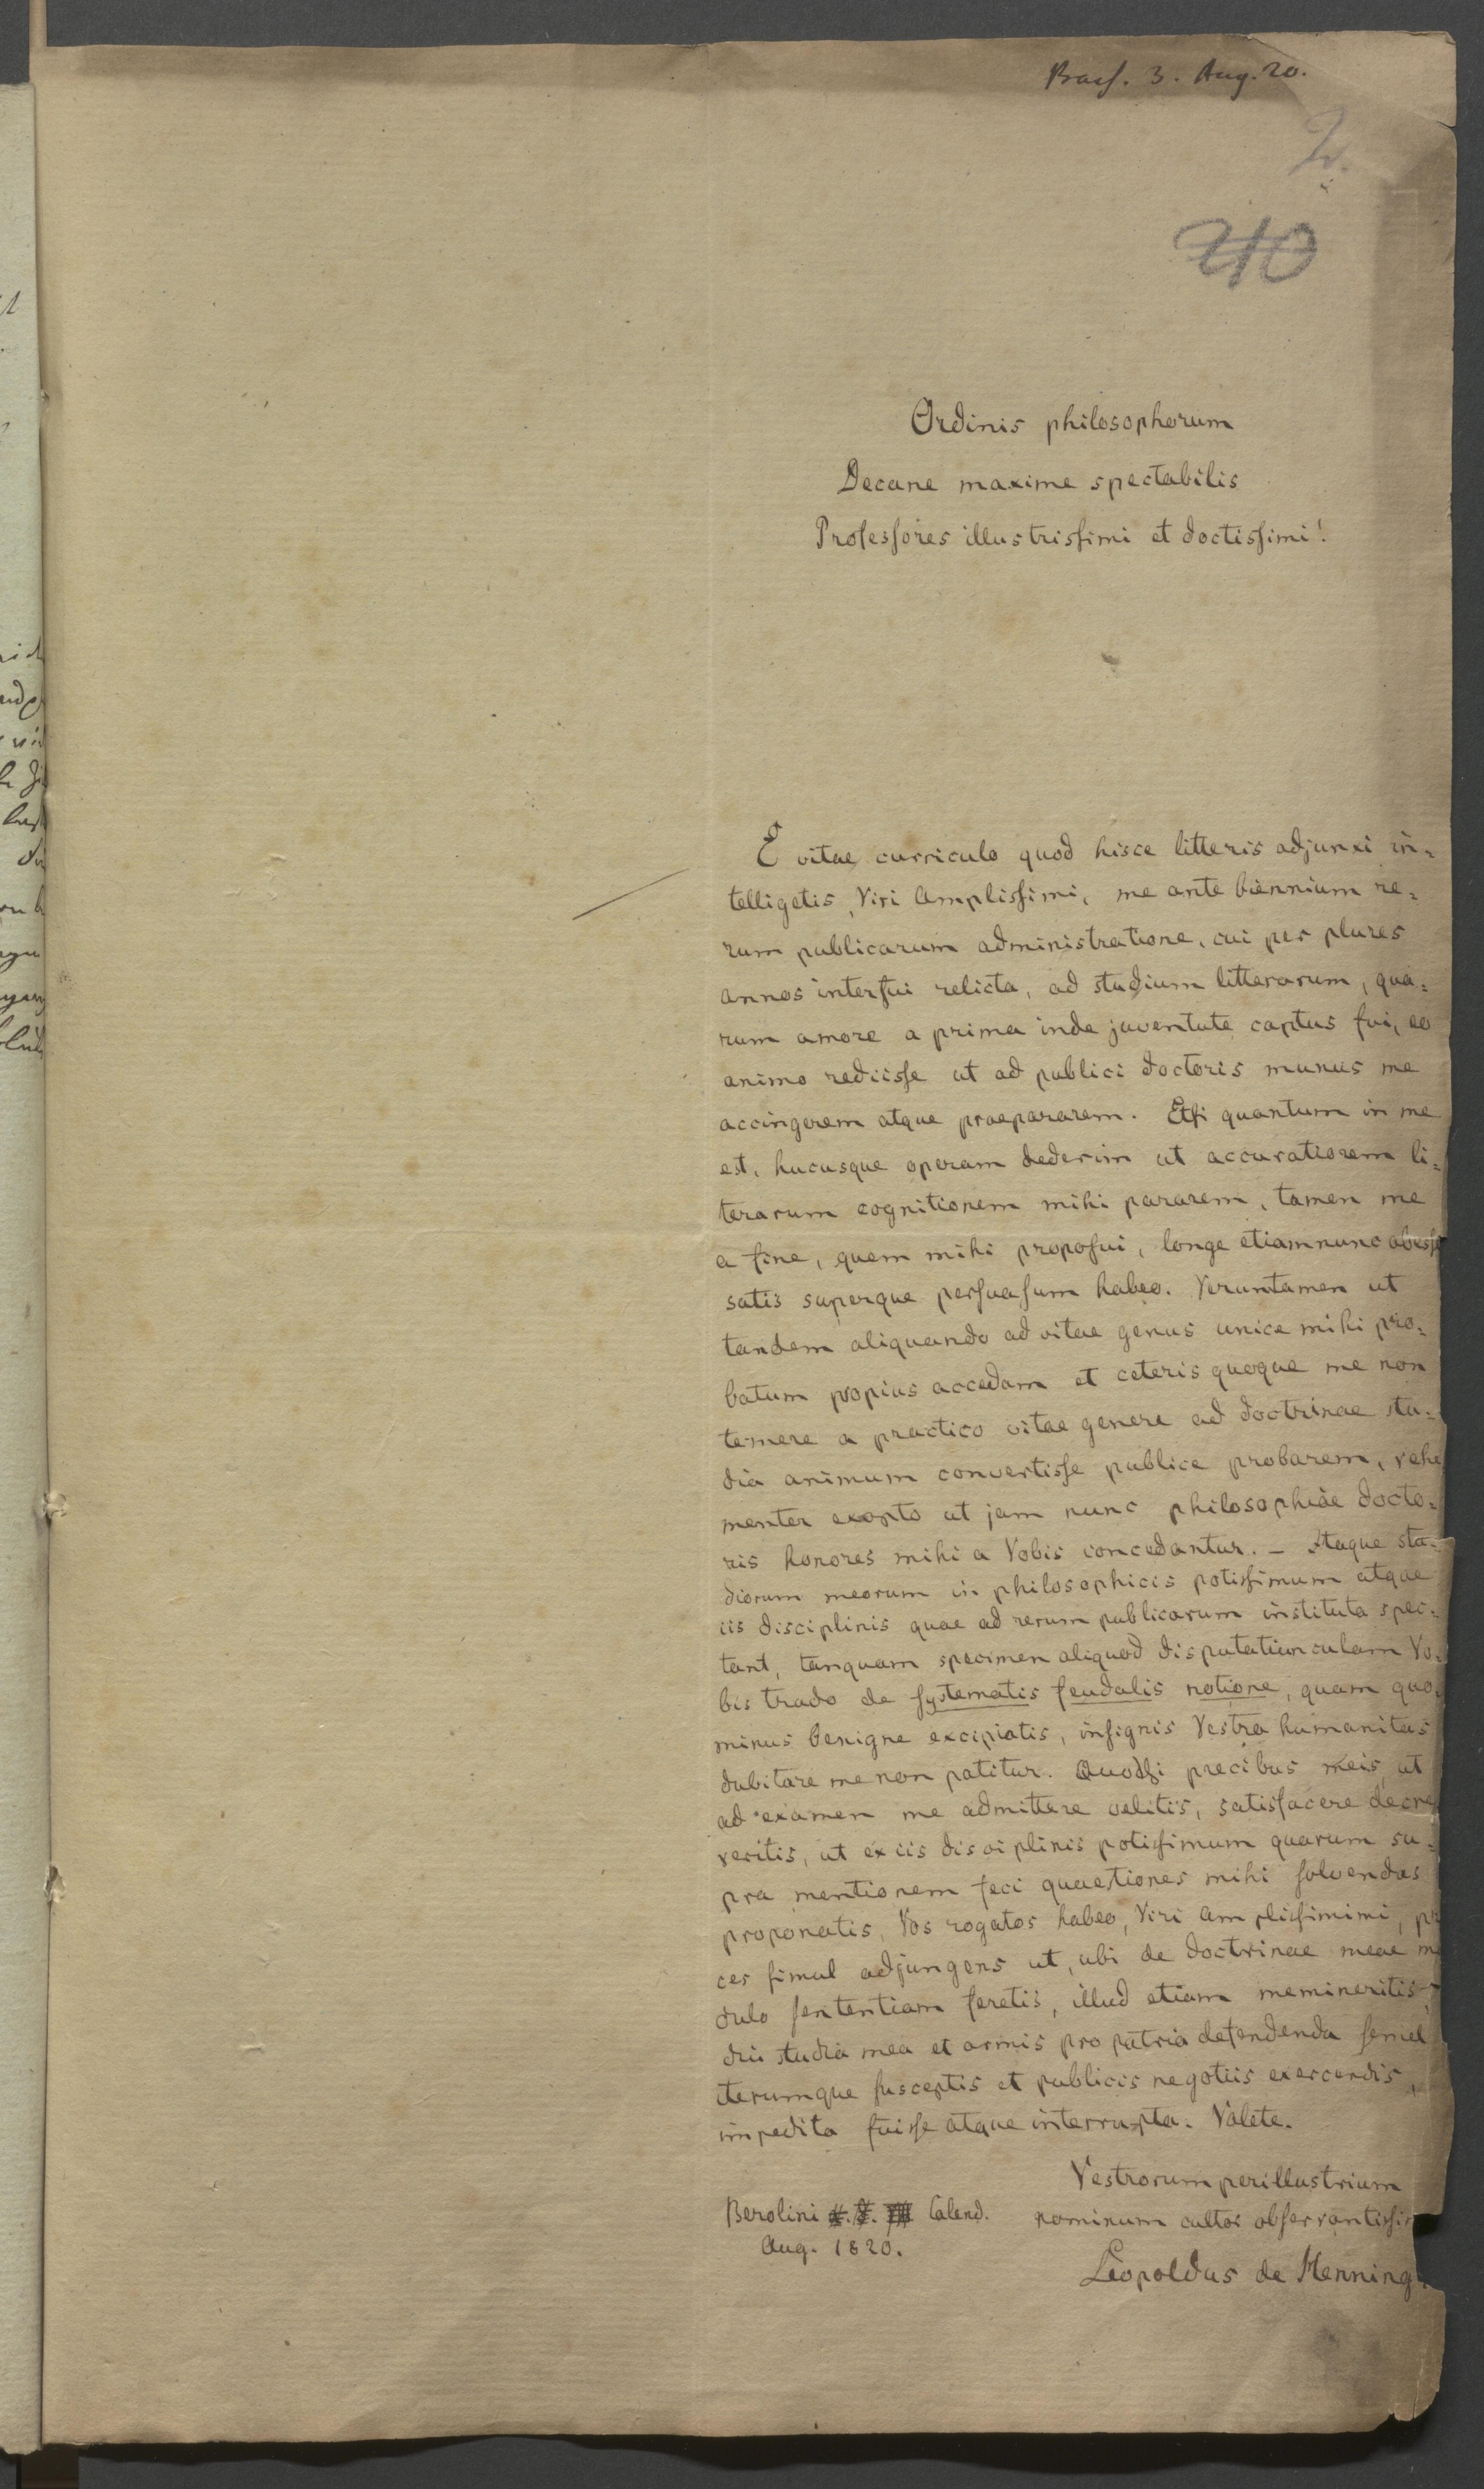 Praes. 3. Aug. 20.
2.
40
Ordinis philosophorum
Decane maxime spectabilis
Professores illustrissimi et doctissimi!
E vitae curriculo quod hisce litteris adjunxi in-
telligetis, Viri Amplissimi, me ante biennium re-
rum publicarum administratione, cui per plures
annos interfui relicta, ad studium litterarum, qua-
rum amore a prima inde juventute captus fui, eo
animo rediisse ut ad publici doctoris munus me
accingerem atque praepararem. Etsi quantum in me
est, hucusque operam dederim ut accuratiorem li-
terarum cognitionem mihi pararem, tamen me
a fine, quem mihi proposui, longe etiamnunc abesse
satis superque persuasum habeo. Veruntamen ut
tandem aliquando ad vitae genus unice mihi pro-
batum propius accedam et ceteris quoque me non
temere a practico vitae genere ad doctrinae stu-
dia animum convertisse publice probarem, vehe
menter exopto ut jam nunc philosophiae docto-
ris honores mihi a Vobis concedantur. – Itaque stu-
diorum meorum in philosophicis potissimum atque
iis disciplinis quae ad rerum publicarum instituta spec-
tant, tanquam specimen aliquod disputatiunculam Vo-
bis trado de systematis feudalis notione, quam quo-
minus benigne excipiatis, insignis Vestra humanitas
dubitare me non patitur. Quodsi precibus meis, ut
ad examen me admittere velitis, satisfacere decre
veritis, ut ex iis disciplinis potissimum quarum su-
pra mentionem feci quaestiones mihi solvendas
proponatis, Vos rogatos habeo, Viri Amplissimimi, pr
ces simul adjungens ut, ubi de doctrinae meae mo
dulo sententiam feretis, illud etiam memineritis,
diu studia mea et armis pro patria defendenda semel
iterumque susceptis et publicis negotiis exercendis,
impedita fuisse atque interrupta. Valete.
Vestrorum perillustrium
nominum cultor observantissim
Berolini Calend.
Aug. 1820.
Leopoldus de Henning.